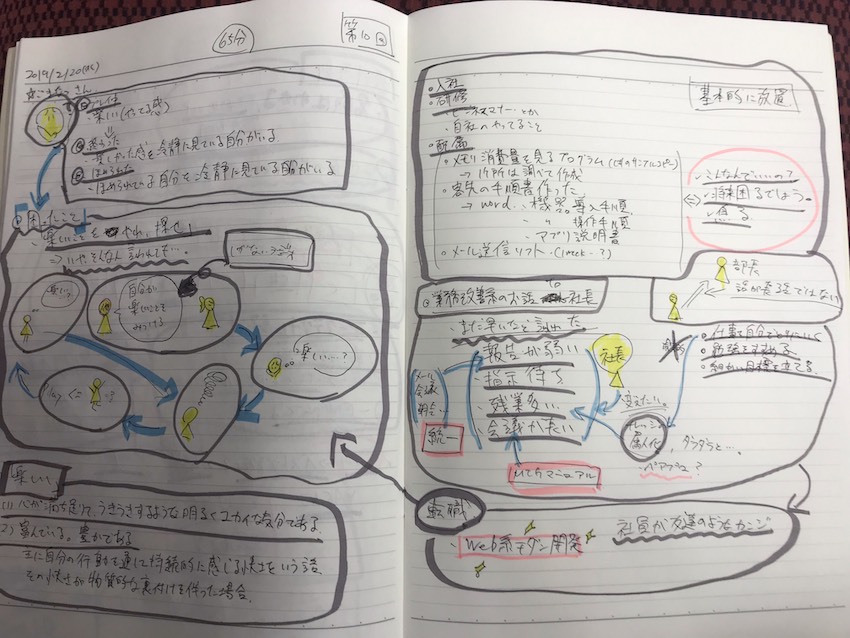 65分
第10回
2019/2/20(水)
楽しい(やってる感)
やった感を冷静に見ている自分がいる
ほめられた
ほめられている自分を冷静に見ている自分がいる
困ったこと
楽しいことをやれ、探せ!
→いやそんな言われても…
楽しい?
自分が
楽しいことを
みつける
楽しい…?
楽しい
(1) 心が満ち足りて、うきうきするような明るくユカイな気分である
(2) 富んでいる。豊かである
主に自分の行動を通して持続的に感じる快さをいう語
その快さが物質的な裏付けを伴った場合、
・入社
・研修
・ビジネスマナーとか
・自社のやってること
・配属
・メモリ消費量を見るプログラム
→ 作成
・客先の手順書作った
→ word、機器。導入手順、
〃 操作手順
アプリ説明書
・メール送信ソフト・(1week・?)
基本的に放置
・こんなんでいいの?
・将来困るでしょう。
・焦る。
部長
話が長く強くてはない
業務改善系のお話 to 社長
まだ早いなと言われた
・報告が弱い
・指示待ち
・残業多い
・会議がかたい
メール
会議
朝会…
統一
MTGマニュアル
社長
変えたい。
ナレッジの
属人化
ダラダラと…、
ペアプロ?
・仕事を自分ごと
・勉強をする
・細かい目標を立てる
転職
Web系モダン開発
社員が友達のようなカンジ